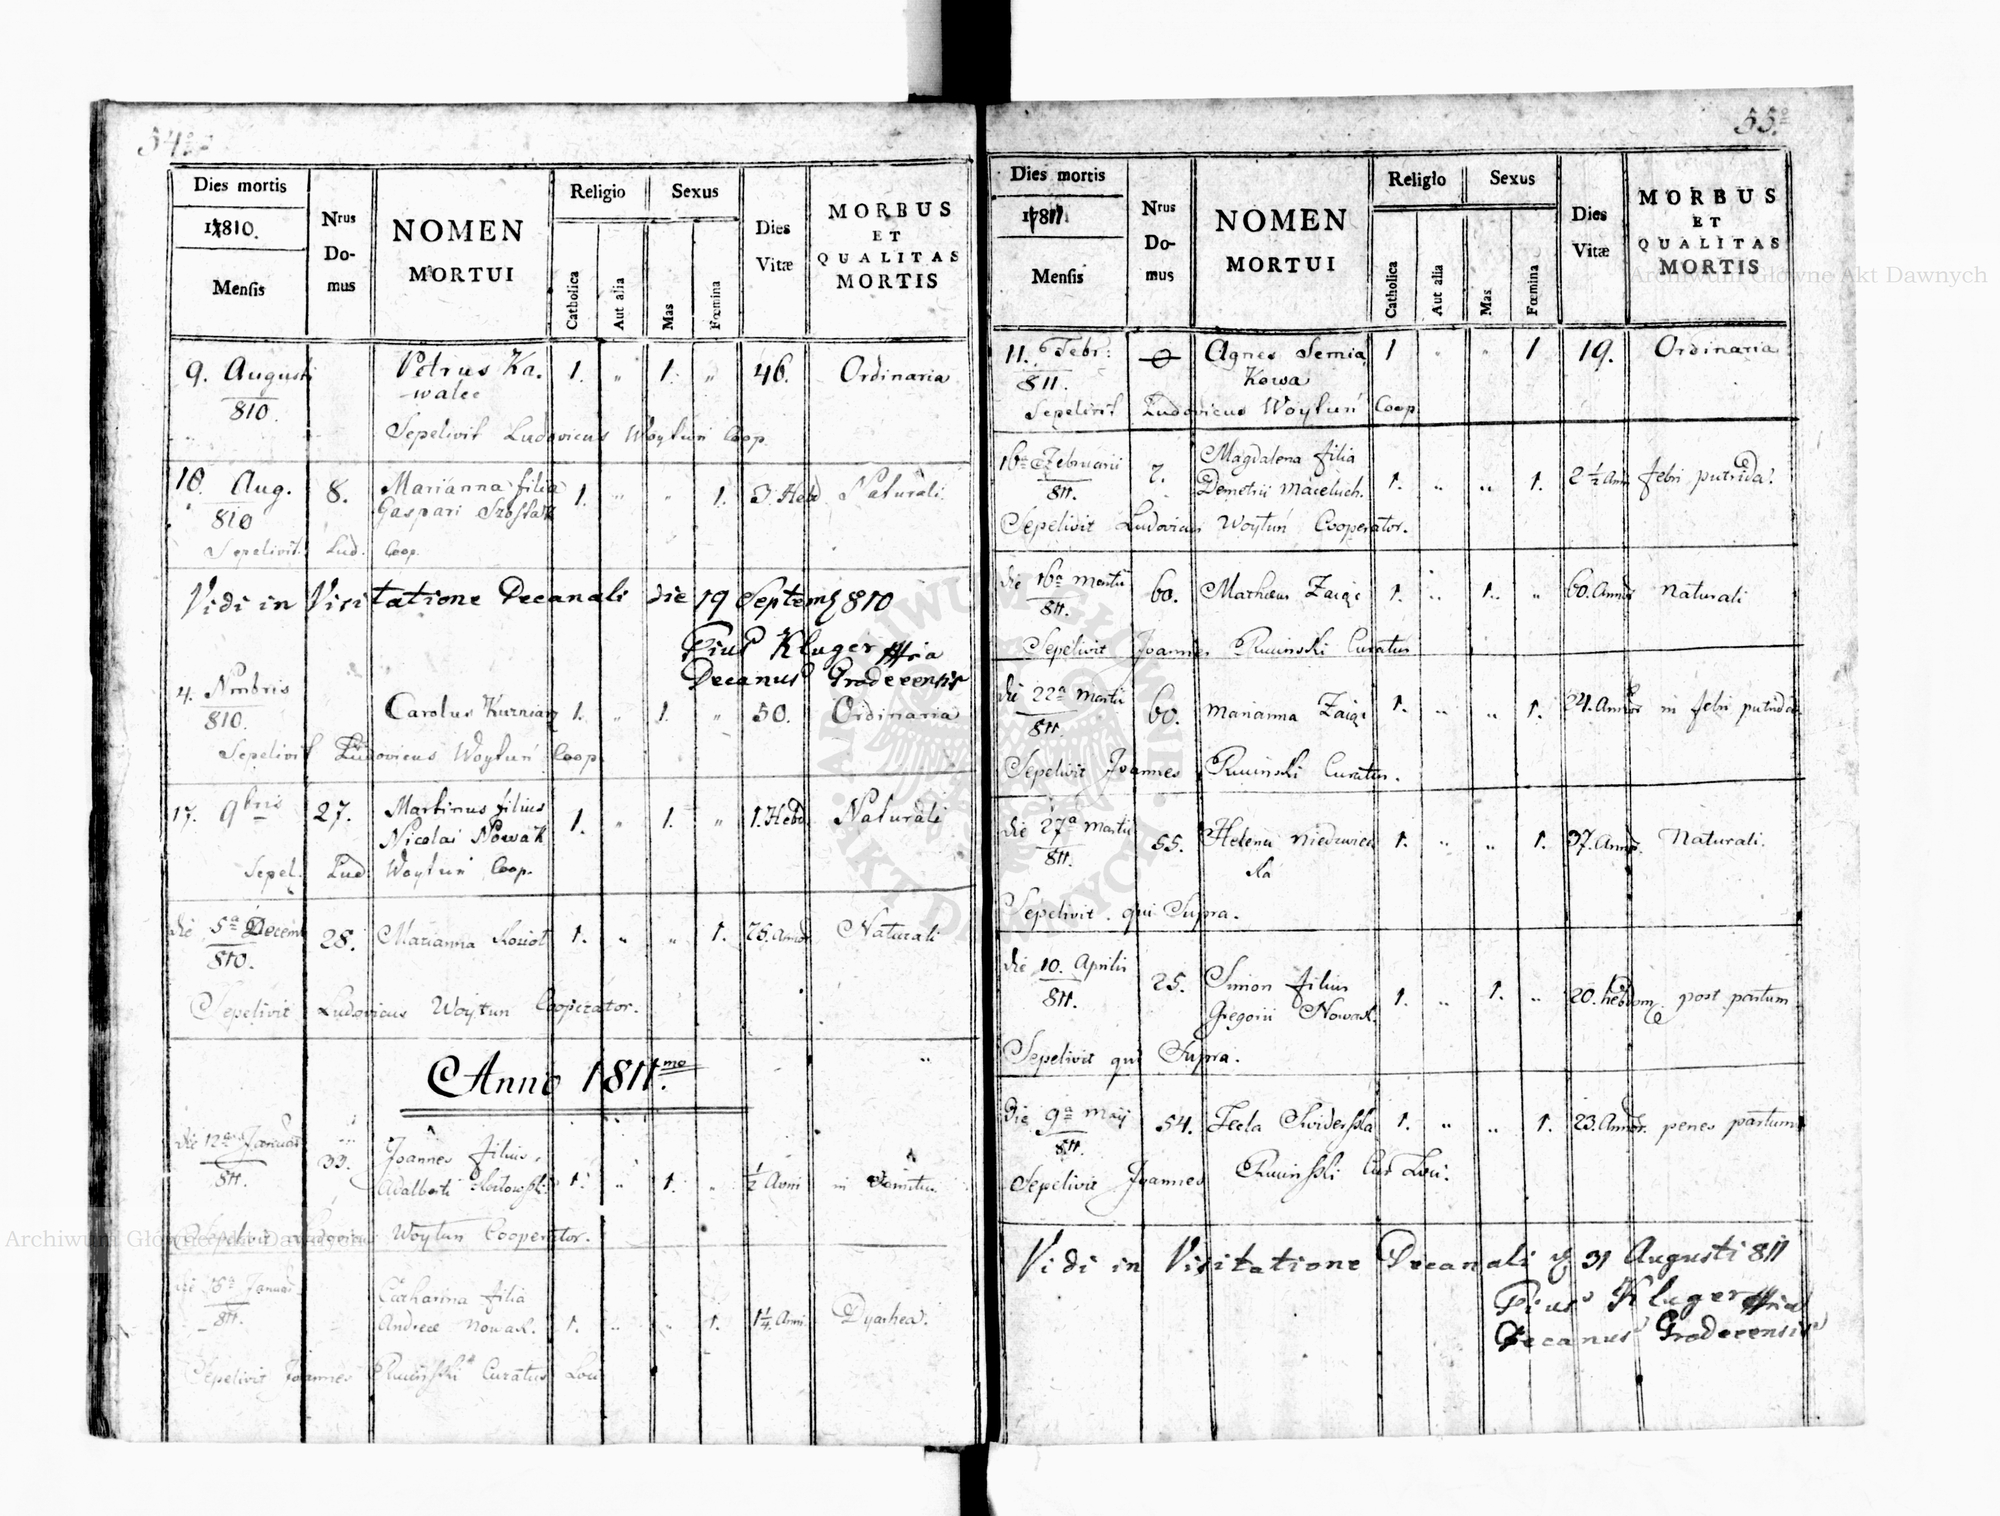 54
Dies mortis
1810.
Mensis
Nrus Do-mus
NOMEN
MORTUI
Religio
Catholica
Aut alia
Sexus
Mas
Fœmina
Dies
Vitæ
MORBUS
ET
QUALITAS
MORTIS
9. Augusti 810. Petrus Ka-walec 1. " 1. " 46. Ordinaria
Sepelivit Ludovicus Woytuń Coop.
10. Aug. 810 8. Marianna filia Gaspari 1. " " 1. 3 Hebd Naturali
Sepelivit Lud. Coop.
Vidi in Visitatione Decanali die 19 Septemb 810
Pius Kluger
Decanus Gradecensis
4. Nmbris 810. Carolus Kurniarz 1. " 1. " 50. Ordinaria
Sepelivit Ludovicus Woytuń Coop
17. 9bris 27. Martinus filius Nicolai Nowak 1. " 1. " 1. Hebd. Naturali
Sepel. Lud. Woytuń Coop.
die 5a Decemb 810. 28. Marianna 1. " " 1. 75. Annor Naturali
Sepelivit Ludovicus Woytun Cooperator.
Anno 1811.mo
die 12a Januar 811. 33. Joannes filius Adalberti 1. " 1. " ½ Anni in
Sepelivit Ludovicus Woytun Cooperator.
Januar 811. Catharina filia Andreæ Nowak. 1. " " 1. 1¼ Anni Dyarhea.
Sepelivit Joannes Curatus Loci
55
Dies mortis
1811.
Mensis
Nrus Do-mus
NOMEN
MORTUI
Religio
Catholica
Aut alia
Sexus
Mas
Fœmina
Dies
Vitæ
MORBUS
ET
QUALITAS
MORTIS
11. Febr: 811. 0 Agnes Semia Kowa 1 " " 1 19. Ordinaria
Sepelivit Ludovicus Woytuń Coop
16a Februarii 811. 7. Magdalena filia Demetrii 1. " " 1. 2½ Ann febri putrida.
Sepelivit Ludovicus Woytuń Cooperator.
die 16a Martii 811. 60. Matheus 1. " 1. " 60. Annor naturali
Sepelivit Joannes Curatus
die 22a Martii 811. 60. Marianna 1. " " 1. 24. Annor in febri putrida
Sepelivit Joannes Curatus.
die 27a Martii 811. 55. Helena 1. " " 1. 37. Annor. Naturali.
Sepelivit qui Supra.
die 10. Aprilis 811. 25. Simon filius Gregorii Nowak. 1. " 1. " 20. hebdom. post partum
Sepelivit qui Supra.
Die 9a Maij 811. 54. Tecla 1. " " 1. 23. Annor. penes partum
Sepelivit Joannes Cur Loci.
Vidi in Visitatione Decanali 31 Augusti 811
Pius Kluger
Decanus Gradecensis
Archiwum Główne Akt Dawnych
Archiwum Główne Akt Dawnych
ARCHIWUM GŁÓWNE · AKT DAWNYCH ·